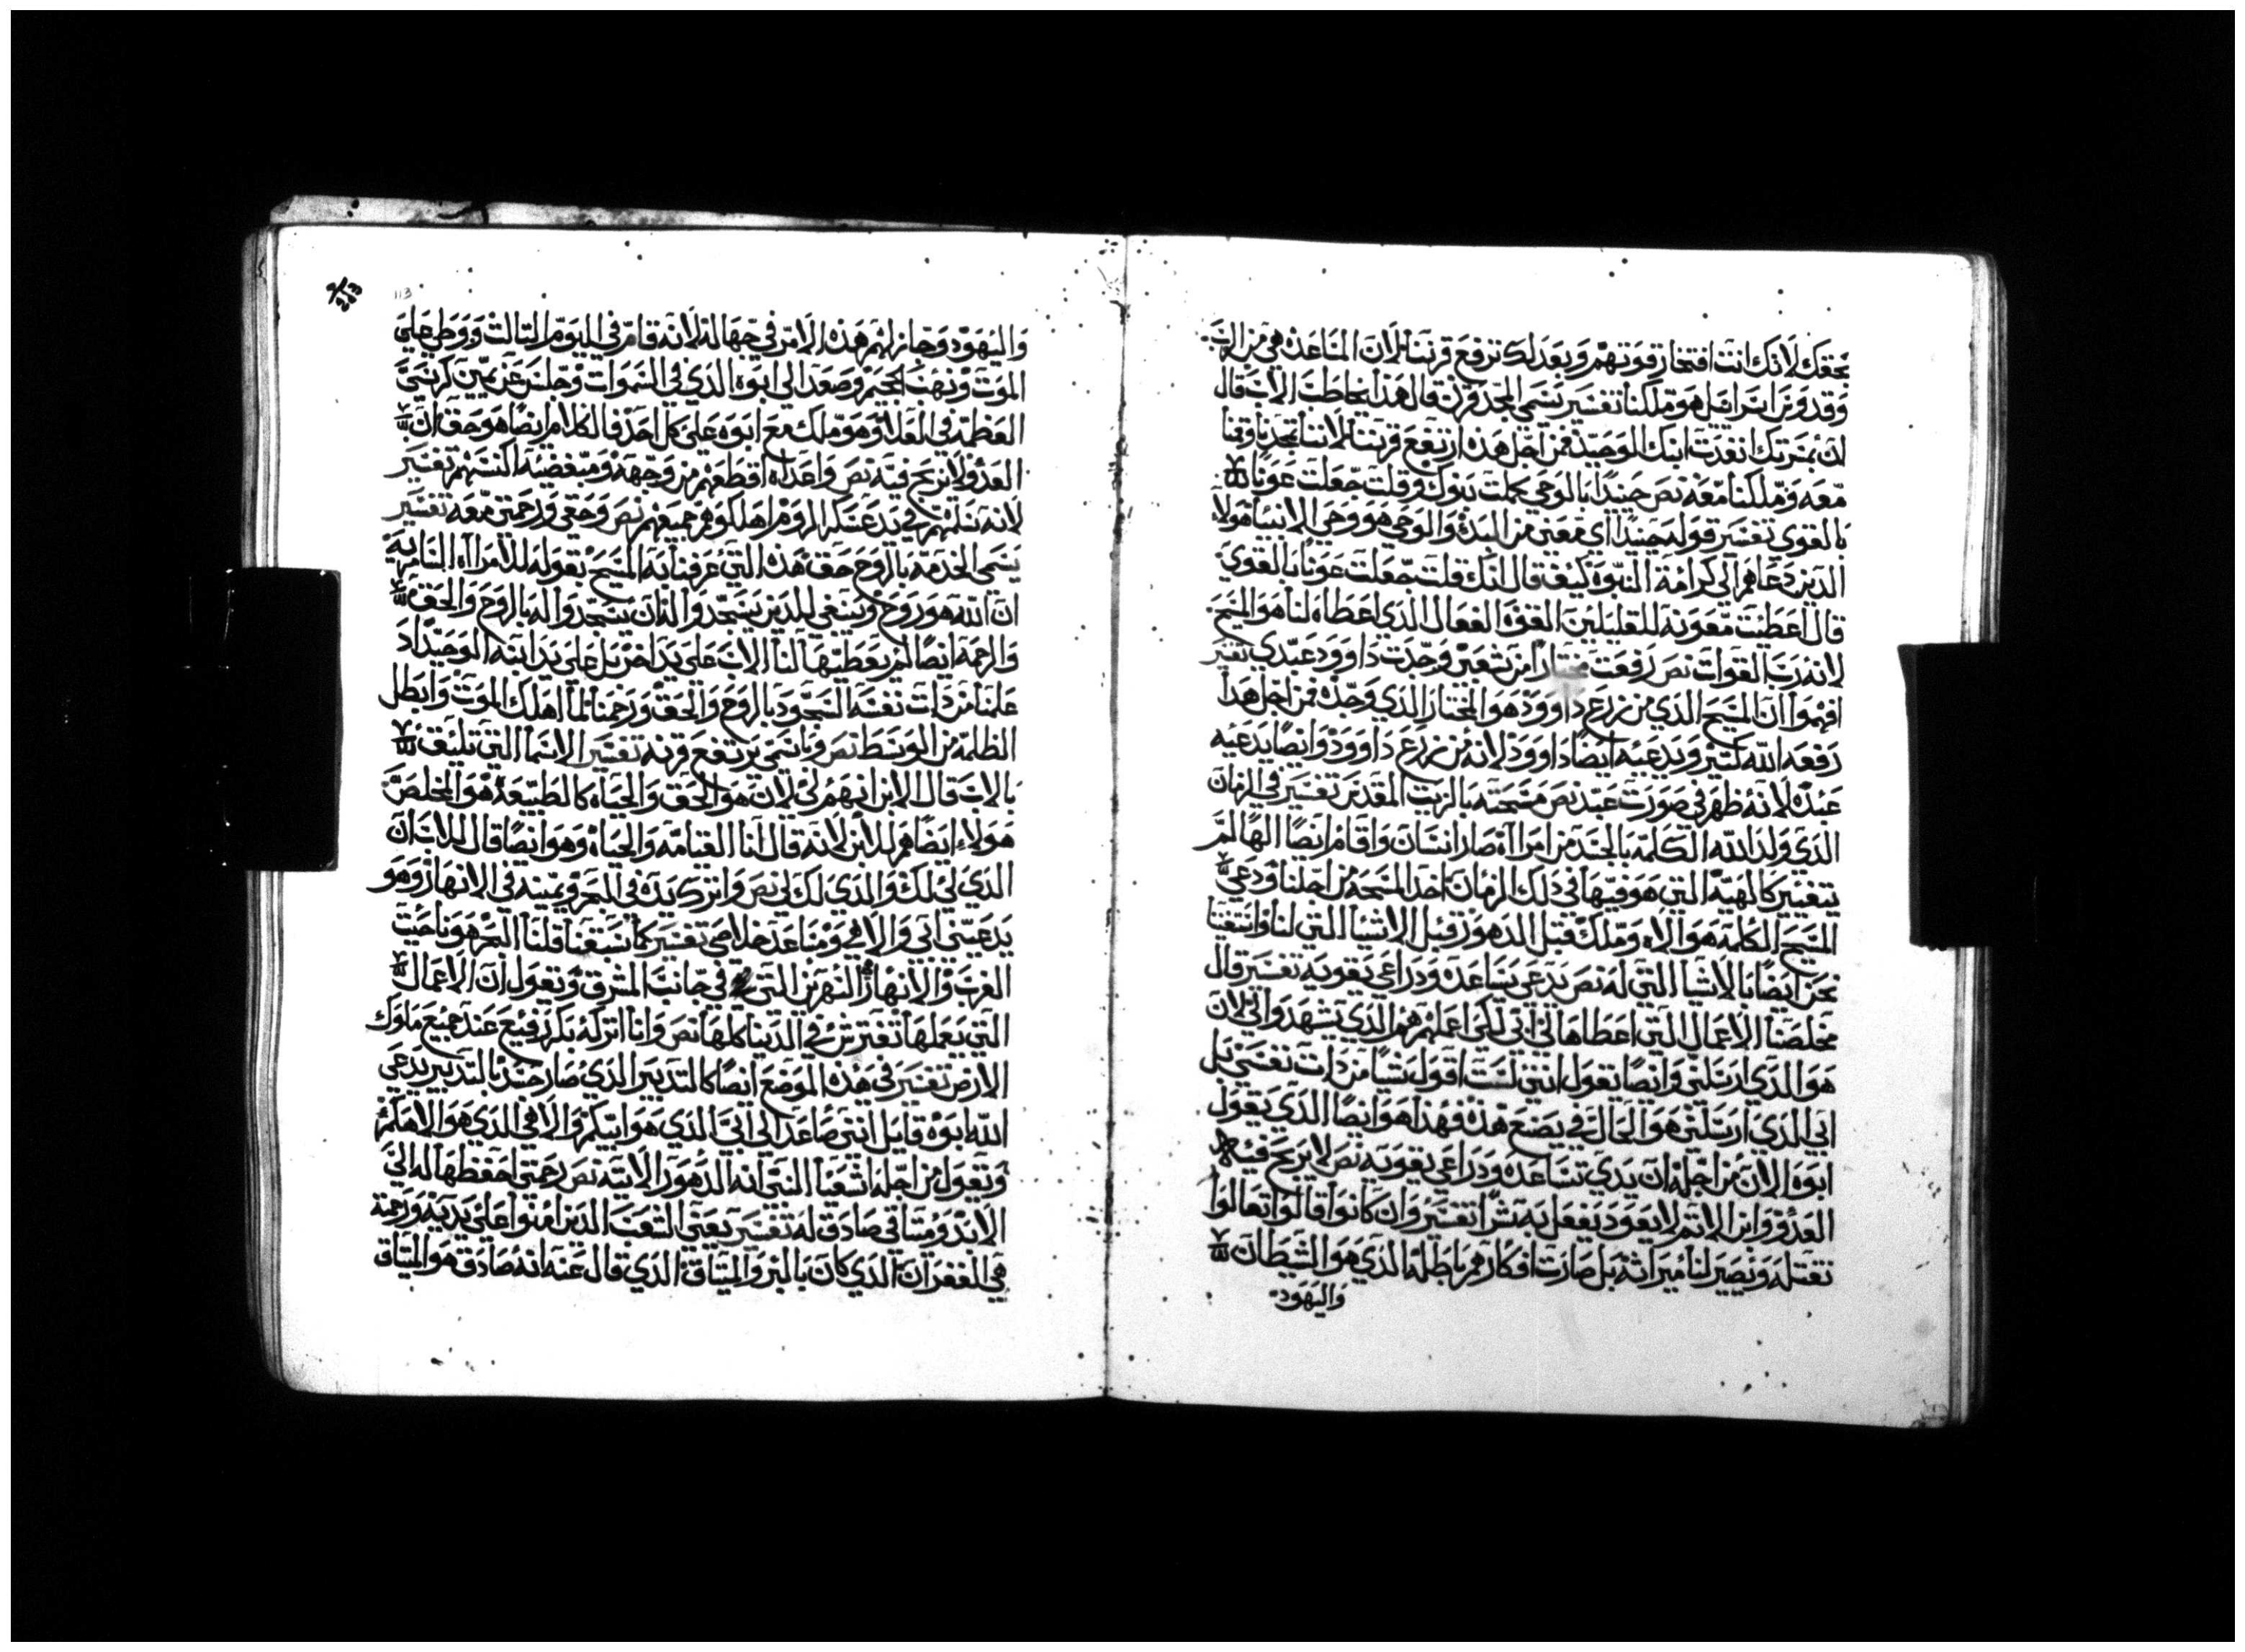 بحقك لانك انت افتخار قوتهم وبعدلك ترفع قرننا لان المساعده هي من الرب
وقدوس اسراييل هو ملكنا تفسير يسمي المجد قرن قال هذا يخاطب الاب قال
لان بمسرتك انفدت ابنك الوحيد فمن اجل هذه ارتفع قرننا لاننا تمجدنا وقمنا
معه وملكنا معه نص حينيدا بالوحي كلمت بنوك وقلت جعلت عونا
بالقوي تفسير قوله حينيدا اي معني من البدء والوحي هو وحي الانبيا هولاء
الدين دعاهم الي كرامة النبوه كيف قال انك قلت جعلت عونا بالقوي
قال اعطيت معونة للقليلين القوه الفعال الذي اعطاه لنا هو المسيح
لانه رب القوات نص رفعت مختارا من شعبي وجدت داوود عبدي تفسير
افهموا ان المسيح الذي من زرع داوود هو المختار الذي وجده فمن اجل هدا
رفعه الله كتير ويدعيه ايضا داوود لانه من زرع داوود وايضا يدعيه
عبده لانه ظهر في صورت عبد نص مسحته بالزيت المقدس تفسير في الزمان
الذي ولد الله الكلمة بالجسد من امراه صار انسان واقام ايضا الها لم
يتغير كالهية التي هو فيها في دلك الزمان اخد المسحه من اجلنا ودعي
المسيح الكلمة هو الاه وملك قبل الدهور قبل الاشيا التي لنا واستغنينا
نحن ايضا بالاشيا التي له نص يدي تساعده ودراعي يقويه تفسير قال
مخلصنا الاعمال التي اعطاها لي ابي لكي اعملهم هم الذي تشهدوا لي لان
هو الذي ارسلني وايضا يقول انني لست اقول شيا من دات نفسي بل
ابي الذي ارسلني هو الحال في يصنع هذه فهذا هو ايضا الذي يقول
ابوه الان من اجله ان يدي تساعده ودراعي يقويه نص لا يربح فيه
العدو وابن الاتم لا يعود يفعل به شرا تفسير وان كانوا قالوا تعالوا
نقتله ويصير لنا ميراثه بل صارت افكارهم باطله الذي هو الشيطان
واليهود
113
واليهود وجاز لهم هذه الامر في جهالة لانه قام في اليوم التالت ووطي علي
الموت ونهب الجحيم وصعد الي ابوه الذي في السموات وجلس عن يمين كرسي
العظمة في العلا وهو ملك مع ابوه علي كل احد فالكلام ايضا هو حق ان
العدو لا يربح فيه نص واعداه اقطعهم من وجهه ومبغضيه اكسهم تفسير
لانه سلمهم في يد عسكر الروم اهلكوهم جميعهم نص وحقي ورحمتي معه تفسير
يسمي الخدمة بالروح حق هذه التي عرفنا به المسيح بقوله للامراه السامرية
ان الله هو روح وينبغي للدين يسجدوا له ان يسجدوا له بالروح والحق
والرحمة ايضا لم يعطيها لنا الاب علي يد اخر بل علي يد ابنه الوحيد اد
علمنا من دات نفسه السجود بالروح والحق ورحمنا لما اهلك الموت وابطل
الظلمة من الوسط نص وباسمي يرتفع قرنه تفسير الاسما التي تليق
بالاب قال الابن انهم لي لان هو الحق والحياه كالطبيعة هو المخلص
هولاء ايضا هم للابن لانه قال انا القيامه والحياه وهو ايضا قال للاب ان
الذي لي لك والذي لك لي نص واترك يده في البحر ويمينه في الانهار وهو
يدعيني ابي والاهي ومساعد خلاصي تفسير كما سبقنا قلنا البحر هو ناحيت
الغرب والانهار النهرين التي في جانب المشرق ويقول ان الاعمال
التي يعلها تفترش في الدنيا كلها نص وانا اتركه بكر رفيع عند جميع ملوك
الارض تفسير في هذه الموضع ايضا كالتدبير الذي صار جسد بالتدبير يدعي
الله ابوه قايل انني صاعد الي ابي الذي هو ابيكم والاهي الذي هو الاهكم
ويقول من اجله اشعيا النبي انه الدهور الاتيه نص رحمتي احفظها له الي
الابد وميتاقي صادق له تفسير يعني الشعب الدين امنوا علي يديه ورحمة
هي للغفران الذي كان بالبر والميتاق الذي قال عنه انه صادق هو الميتاق